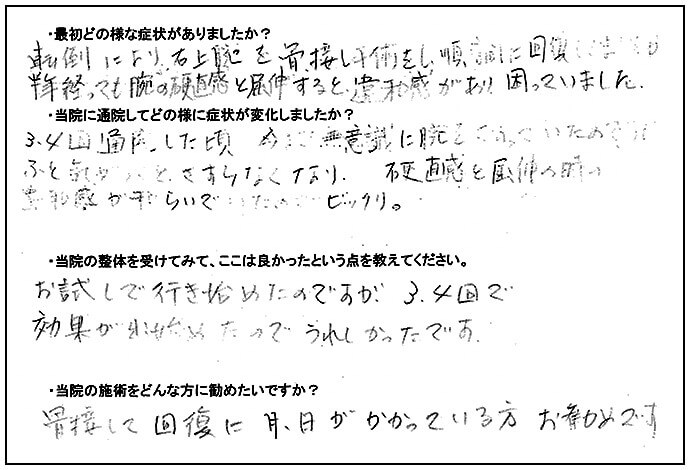 ・最初どの様な症状がありましたか？
転倒により、右上腕を骨接し手術をし、順調に回復
半年経っても腕の硬直感と屈伸すると違和感があり困っていました。
・当院に通院してどの様に症状が変化しましたか？
3.4回通院した頃 無意識に腕を さすっていたのですが
ふと気がつくと、さすらなくなり、硬直感と屈伸の時の
違和感が和らいでいたのでビックリ。
・当院の整体を受けてみて、ここは良かったという点を教えてください。
お試しで行き始めたのですが 3.4回で
効果が出始めたのでうれしかったです。
・当院の施術をどんな方に勧めたいですか？
骨接して回復に月、日がかかっている方 お勧めです